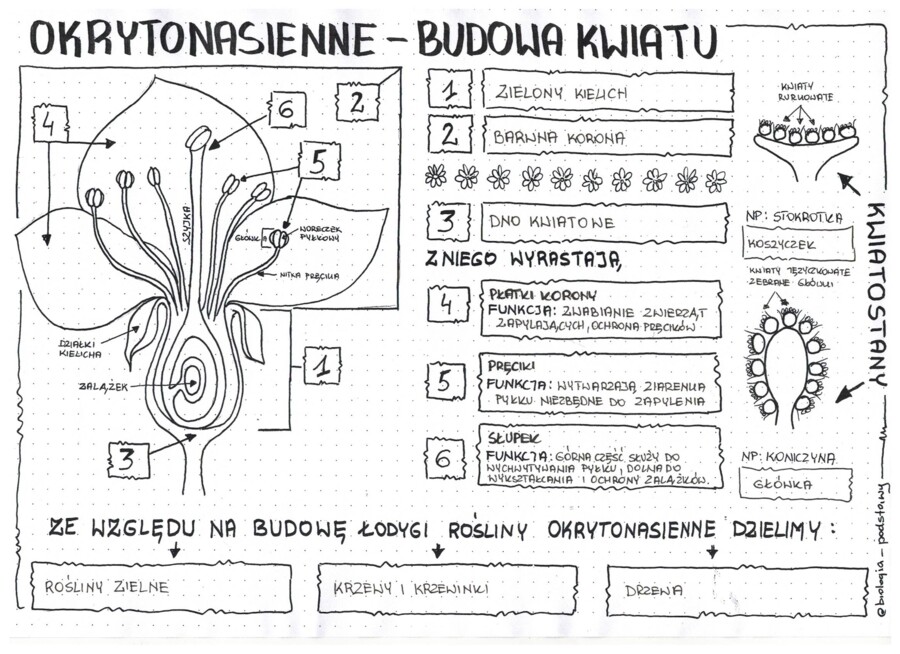 OKRYTONASIENNE – BUDOWA KWIATU
4
6
2
5
SZYJKA
GŁÓWKA
WORECZEK
PYŁKOWY
NITKA PRĘCIKA
DZIAŁKI
KIELICHA
ZALĄŻEK
1
3
1
ZIELONY KIELICH
2
BARWNA KORONA
3
DNO KWIATOWE
Z NIEGO WYRASTAJĄ
4
PŁATKI KORONY
FUNKCJA: ZWABIANIE ZWIERZĄT
ZAPYLAJĄCYCH, OCHRONA PRĘCIKÓW
5
PRĘCIKI
FUNKCJA: WYTWARZAJĄ ZIARENKA
PYŁKU NIEZBĘDNE DO ZAPYLENIA
6
SŁUPEK
FUNKCJA: GÓRNA CZĘŚĆ SŁUŻY DO
WYCHWYTYWANIA PYŁKU, DOLNA DO
WYKSZTAŁCANIA I OCHRONY ZALĄŻKÓW.
KWIATY
RURKOWATE
NP: STOKROTKA
KOSZYCZEK
KWIATY JĘZYCZKOWATE
ZEBRANE GŁÓWKI
NP: KONICZYNA
GŁÓWKA
KWIATOSTANY
ZE WZGLĘDU NA BUDOWĘ ŁODYGI ROŚLINY OKRYTONASIENNE DZIELIMY:
ROŚLINY ZIELNE
KRZEWY I KRZEWINKI
DRZEWA
@biologia-podstawy